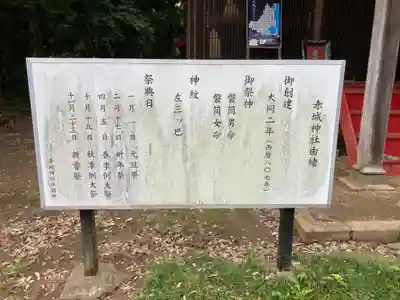 赤城神社由緒
御創建
大同二年(西暦八〇七年)
御祭神
磐筒男命
磐筒女命
神紋
左三ッ巴
祭典日
一月一日 元旦祭
二月十七日 祈年祭
四月五日 春季例大祭
十月十五日 秋季例大祭
十一月二十三日 新嘗祭